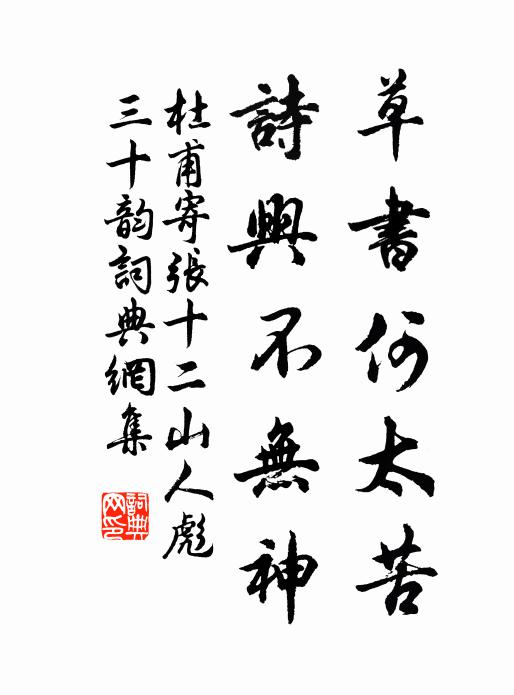 草書何太苦
詩興不無神
杜甫寄張十二山人彪
三十韵詞典網集
詞典
网印